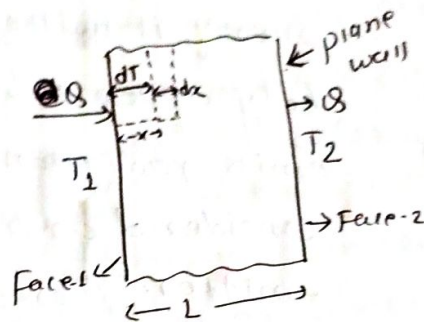 plane
wall
dT
Q
dx
Q
x
T1
T2
Face-2
Face-1
L